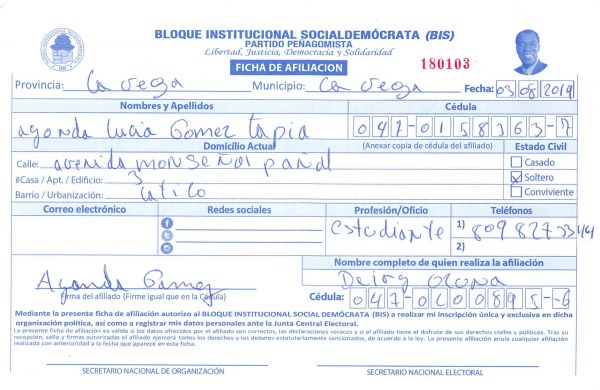 BLOQUE INSTITUCIONAL SOCIALDEMÓCRATA (BIS)
PARTIDO PEÑAGOMISTA
Libertad, Justicia, Democracia y Solidaridad
FICHA DE AFILIACION
180103
Provincia: La vega Municipio: La vega Fecha: 03/08/2019
Nombres y Apellidos Cédula
Agonda Lucia Gomez tapia 047-0158363-7
Domicilio Actual (Anexar copia de cédula del afiliado) Estado Civil
Calle: avenida monseñol panal Casado
#Casa / Apt. / Edificio: 3 Soltero
Barrio / Urbanización: Conviviente
Correo electrónico Redes sociales Profesión/Oficio Teléfonos
estudiante 1) 809827
2)
Nombre completo de quien realiza la afiliación
Gomez
Firma del afiliado (Firme igual que en la Cédula) Cédula: 047-0200895-6
Mediante la presente ficha de afiliación autorizo al BLOQUE INSTITUCIONAL SOCIAL DEMÓCRATA (BIS) a realizar mi inscripción única y exclusiva en dicha
organización política, así como a registrar mis datos personales ante la Junta Central Electoral.
La presente ficha de afiliación es válida si los datos ofrecidos por el afiliado son correctos, las declaraciones veraces y si el afiliado tiene el disfrute de sus derechos civiles y políticos. Tras su
recepción, sello y firmas autorizadas el afiliado ejercerá todos los derechos y los deberes estatutariamente sancionados, de acuerdo a la ley. La presente afiliación anula cualquier afiliación
realizada con anterioridad a la fecha que aparece en esta ficha.
SECRETARIO NACIONAL DE ORGANIZACIÓN SECRETARIO NACIONAL ELECTORAL